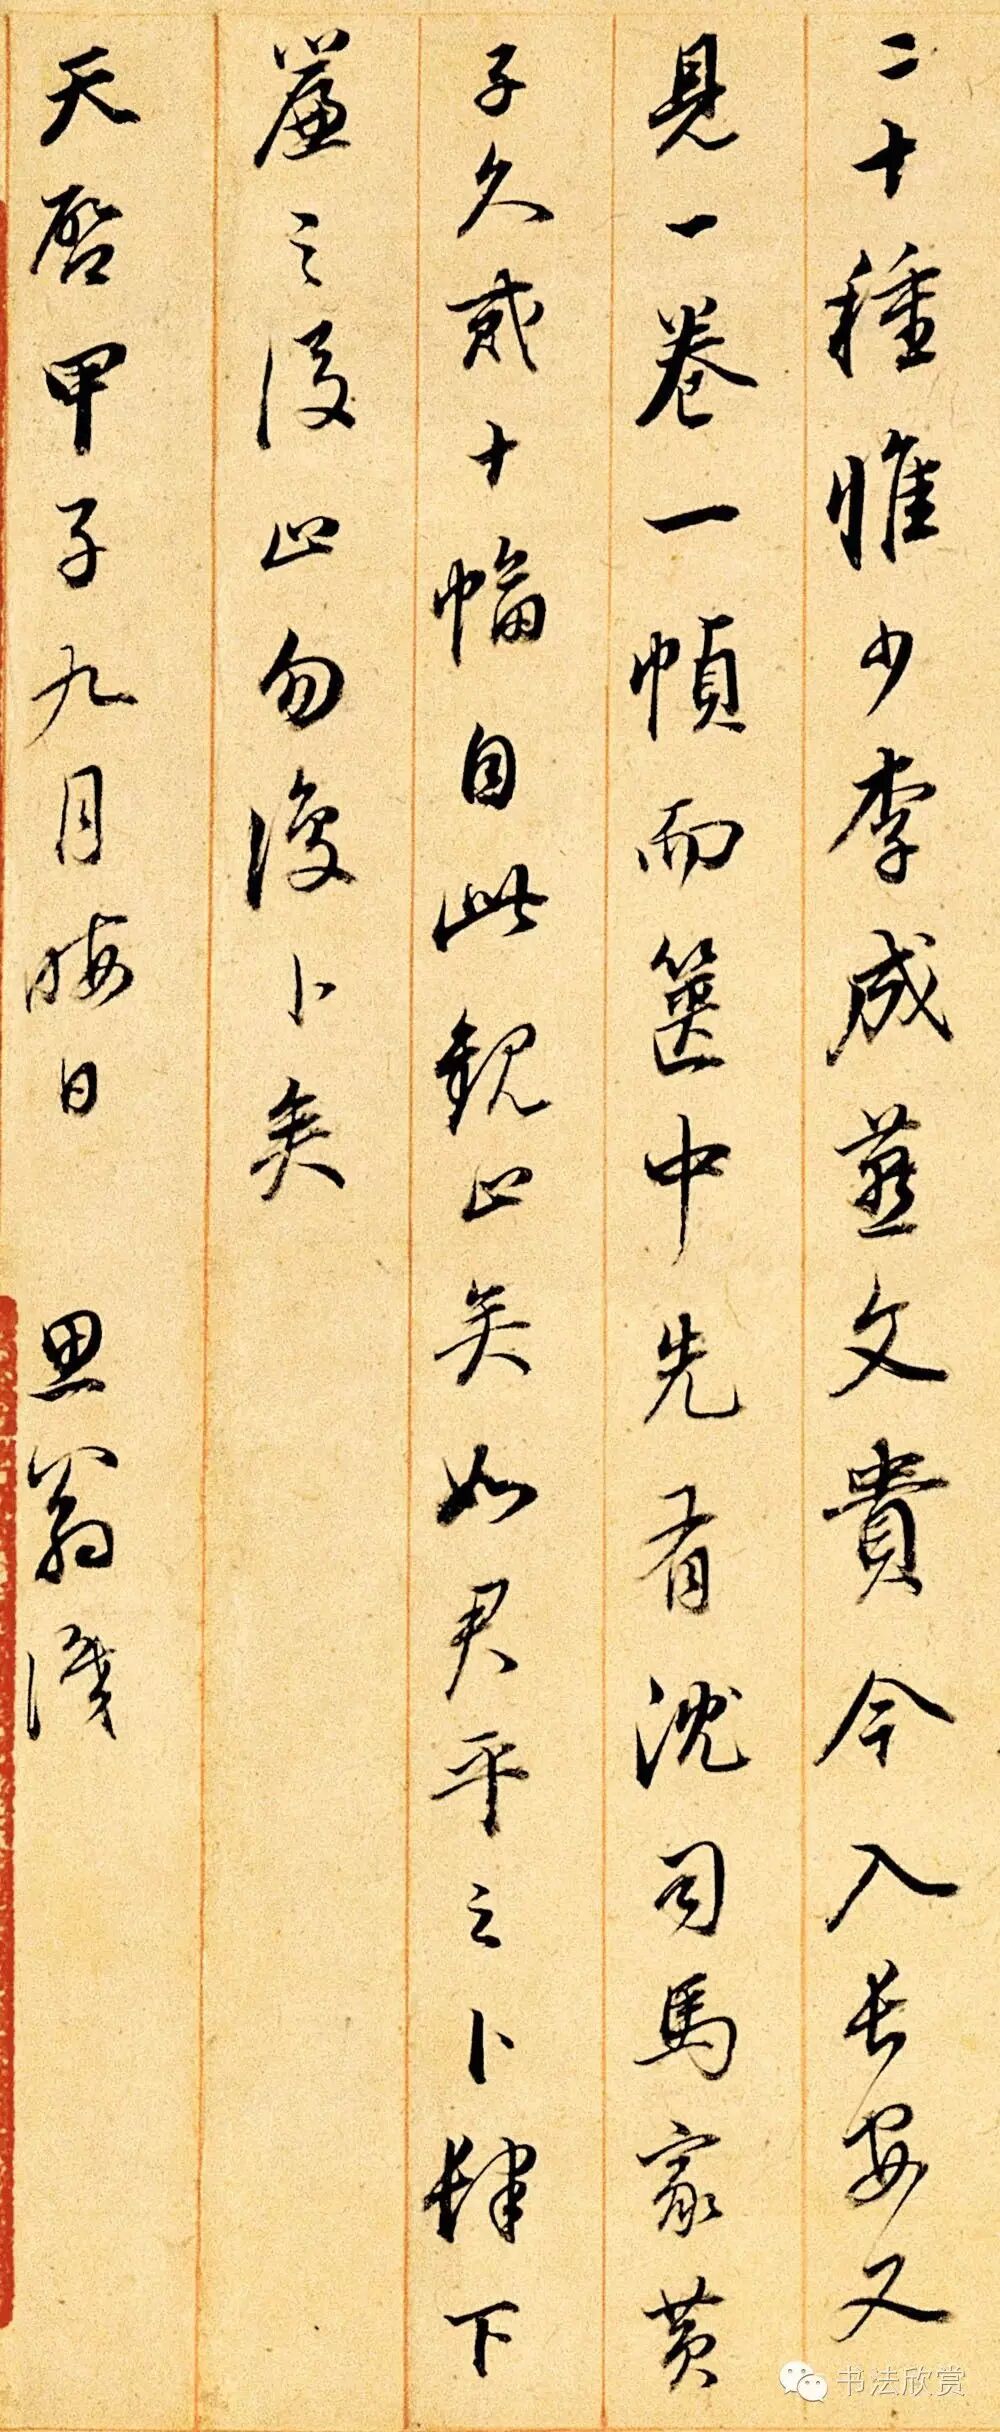 二十種惟少李成燕文貴今入長安又
見一卷一幀而篋中先有沈司馬家黃
子久貳十幅自此觀止矣如君平之卜肆下
簾之後止勿復卜矣
天啓甲子九月晦日 思翁識
书法欣赏